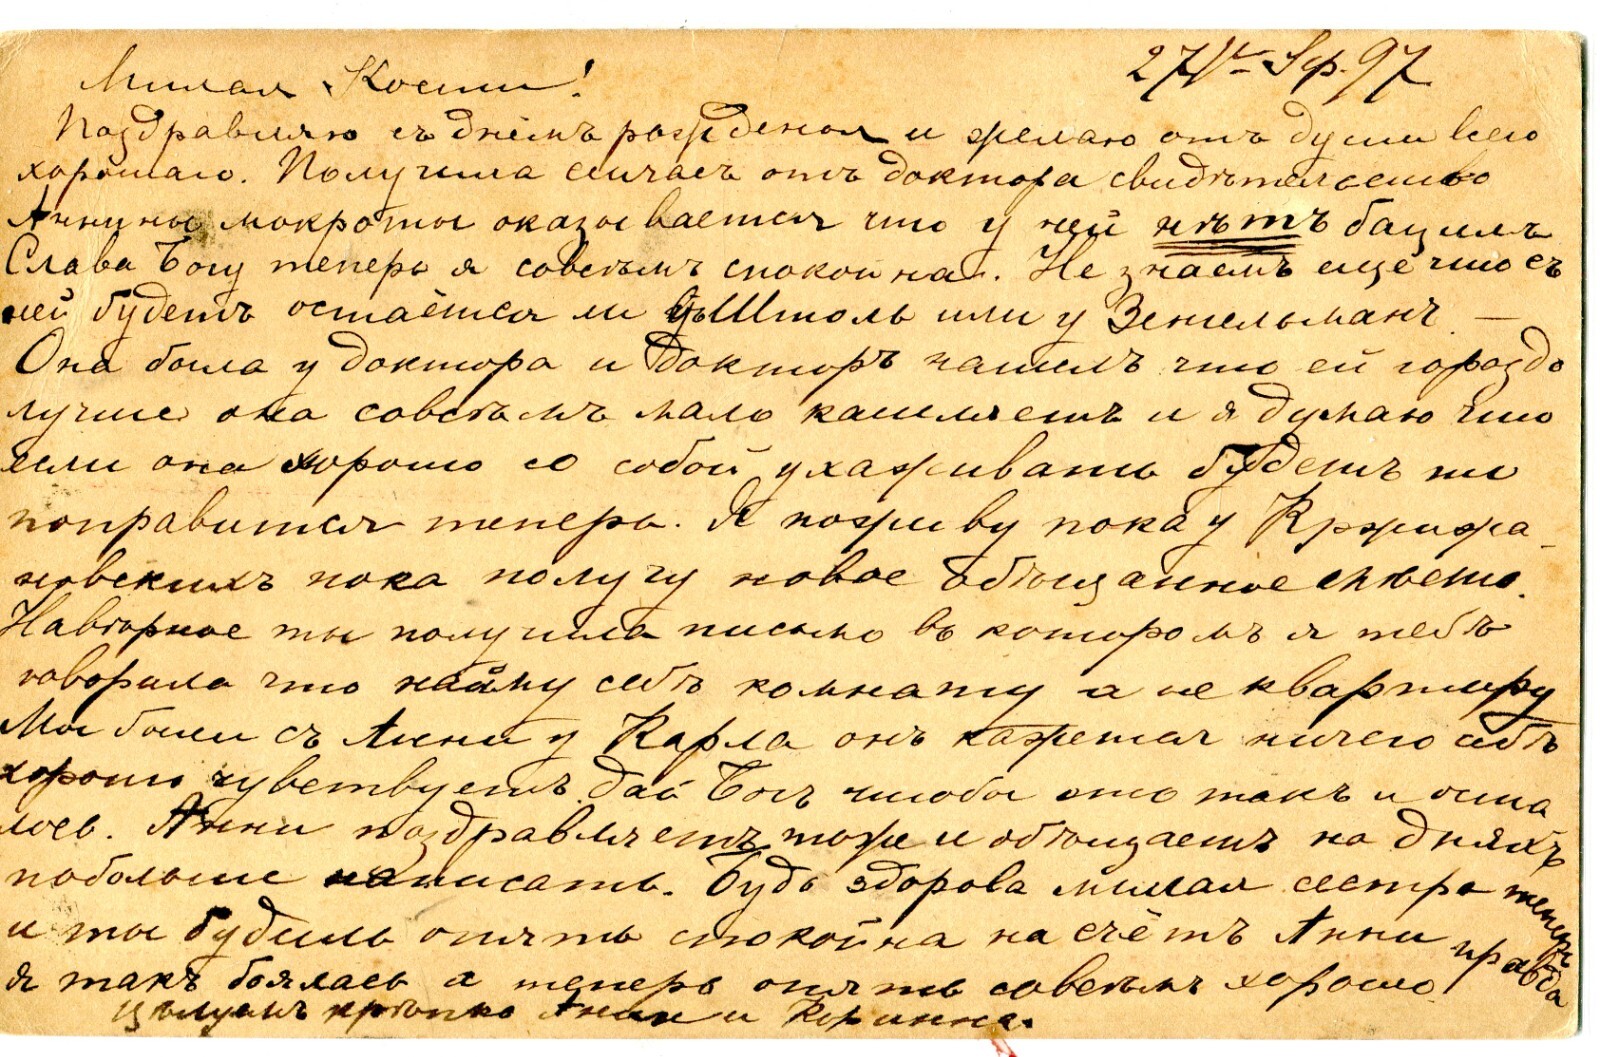 27 Sep. 97
Милая Кости!
Поздравляю съ днёмъ рожденоя и желаю отъ души всего
хорошаго. Получила сичасъ отъ доктора свидѣтельство
Аннины мокроты оказывается что у ней нѣтъ бацилъ
Слава Богу теперь я совсѣмъ спокойна. Не знаемъ ещё что съ
ней будетъ остаётся ли у Штоль или у Зенгельманъ —
Она была у доктора и докторъ нашелъ что ей гораздо
лучше она совсѣмъ мало кашляетъ и я думаю что
если она хорошо со собой ухаживать будетъ то
поправится теперь. Я поживу пока у Кржижа-
новскихъ пока получу новое обѣщанное мѣсто.
Навѣрное ты получила письмо въ которомъ я тебѣ
говорила что найму себѣ комнату а не квартиру
Мы были съ Анни у Карла онъ кажется ничего себѣ
хорошо чувствуетъ дай Богъ чтобы это такъ и оста
лось. Анни поздравляетъ тоже и обѣщаетъ на дняхъ
побольше написать. Будь здорова милая сестра теперь
и ты будишь опять спокойна на счётъ Анни правда
я такъ боялась а теперь опять совсѣмъ хорошо
Цѣлуемъ крѣпко Анни и Коринна.